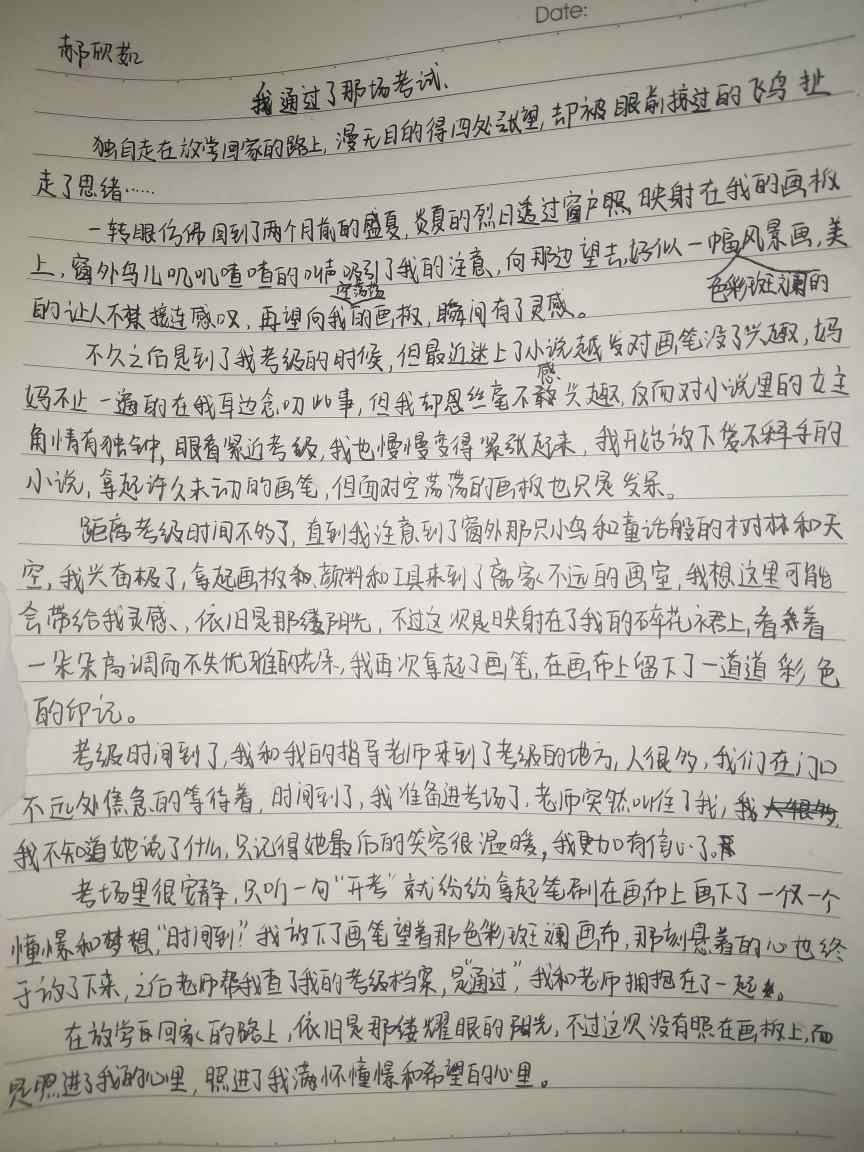 Date:
郝欣茹
我通过了那场考试.
独自走在放学回家的路上,漫无目的得四处张望,却被眼前掠过的飞鸟扯
走了思绪……
一转眼仿佛回到了两个月前的盛夏,炎夏的烈日透过窗户照映射在我的画板
上,窗外鸟儿叽叽喳喳的叫声吸引了我的注意,向那边望去,好似一幅风景画,美
色彩斑斓的
空荡荡
的让人不禁接连感叹,再望向我的画板,瞬间有了灵感。
不久之后是到了我考级的时候,但最近迷上了小说越发对画笔没了兴趣,妈
感
妈不止一遍的在我耳边念叨此事,但我却思丝毫不敢兴趣,反而对小说里的女主
角情有独钟,眼看紧近考级,我也慢慢变得紧张起来,我开始放下爱不释手的
小说,拿起许久未动的画笔,但面对空荡荡的画板也只是发呆。
距离考级时间不多了,直到我注意到了窗外那只小鸟和童话般的树林和天
空,我兴奋极了,拿起画板和颜料和工具来到了离家不远的画室,我想这里可能
会带给我灵感、,依旧是那缕阳光,不过这次是映射在了我的碎花裙上,看着
一朵朵高调而不失优雅的花朵,我再次拿起了画笔,在画布上留下了一道道彩色
的印记。
考级时间到了,我和我的指导老师来到了考级的地方,人很多,我们在门口
不远处焦急的等待着,时间到了,我准备进考场了,老师突然叫住了我,我
我不知道她说了什么,只记得她最后的笑容很温暖,我更加有信心了。
考场里很安静,只听一句“开考”就纷纷拿起笔刷在画布上画下了一个又一个
憧憬和梦想,“时间到!”我放下了画笔望着那色彩斑斓画布,那刻悬着的心也终
于放了下来,之后老师帮我查了我的考级档案,是“通过”,我和老师拥抱在了一起。
在放学回家的路上,依旧是那缕耀眼的阳光,不过这次没有照在画板上,而
是照进了我的心里,照进了我满怀憧憬和希望的心里。